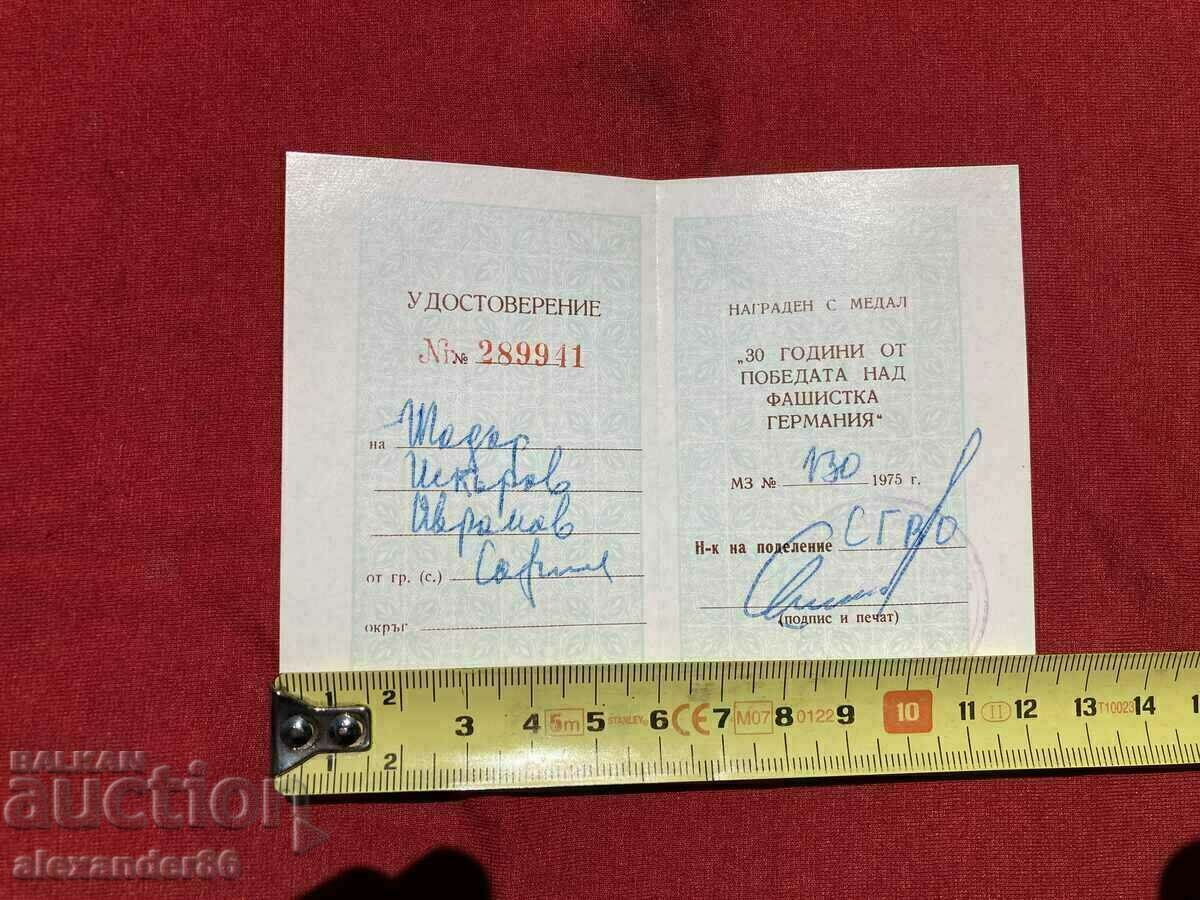 УДОСТОВЕРЕНИЕ
№ 289941
на Тодор
Искъров
Аврамов
от гр. (с.) София
окръг
НАГРАДЕН С МЕДАЛ
„30 ГОДИНИ ОТ
ПОБЕДАТА НАД
ФАШИСТКА
ГЕРМАНИЯ“
МЗ № 130 1975 г.
Н-к на поделение СГРО
(подпис и печат)
1 2 3 4 5m 5 STANLEY 6 CE 7 M07 8 0122 9 10 11 II 12 13 T10023 14
1 2
BALKAN
auction
alexander86